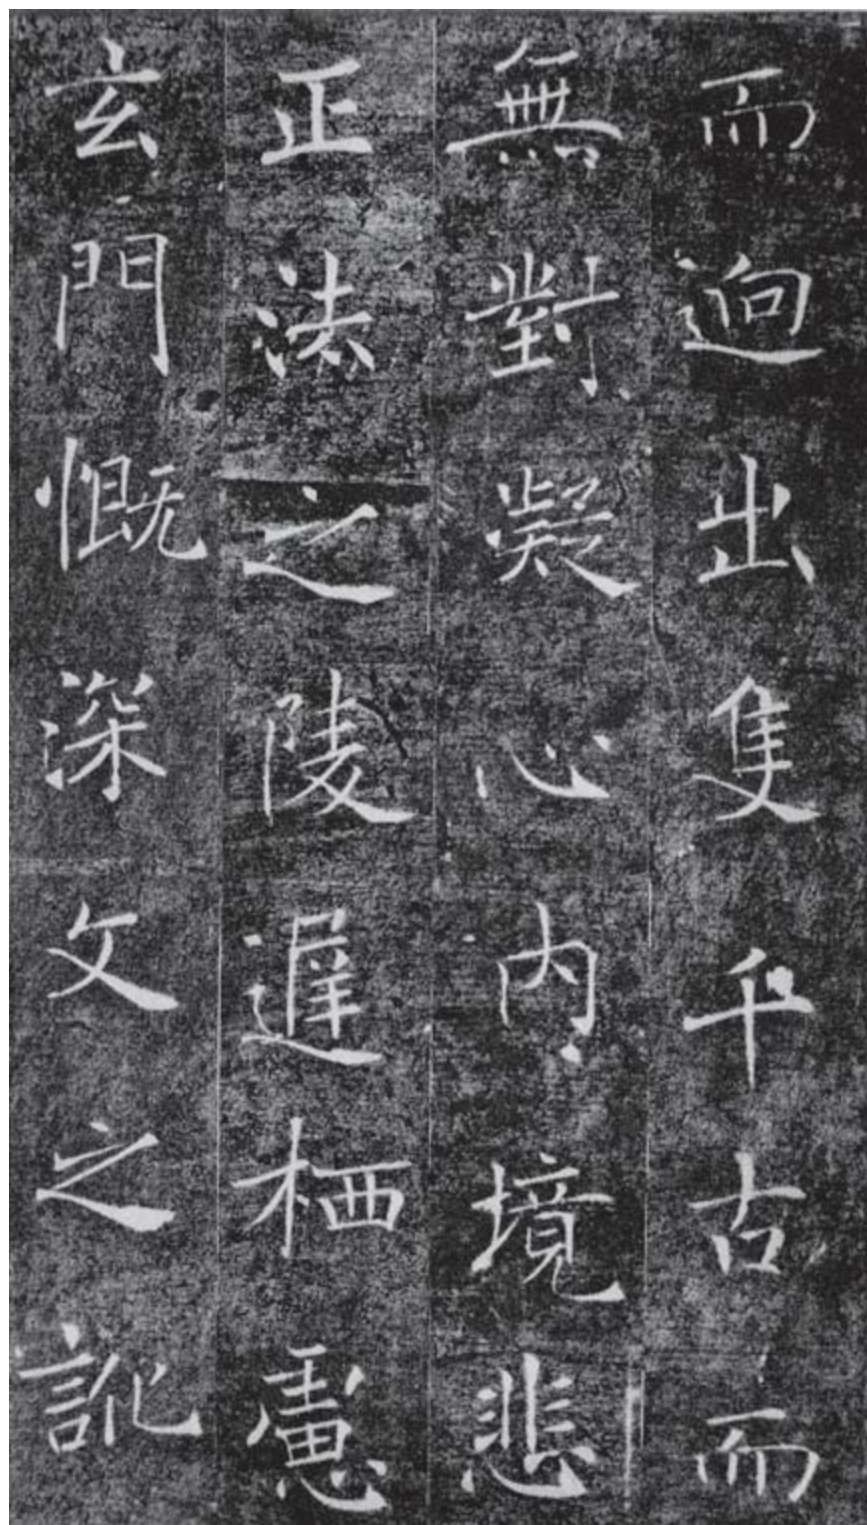 而逈出隻千古而
無對凝心内境悲
正法之陵遲栖慮
玄門慨深文之訛